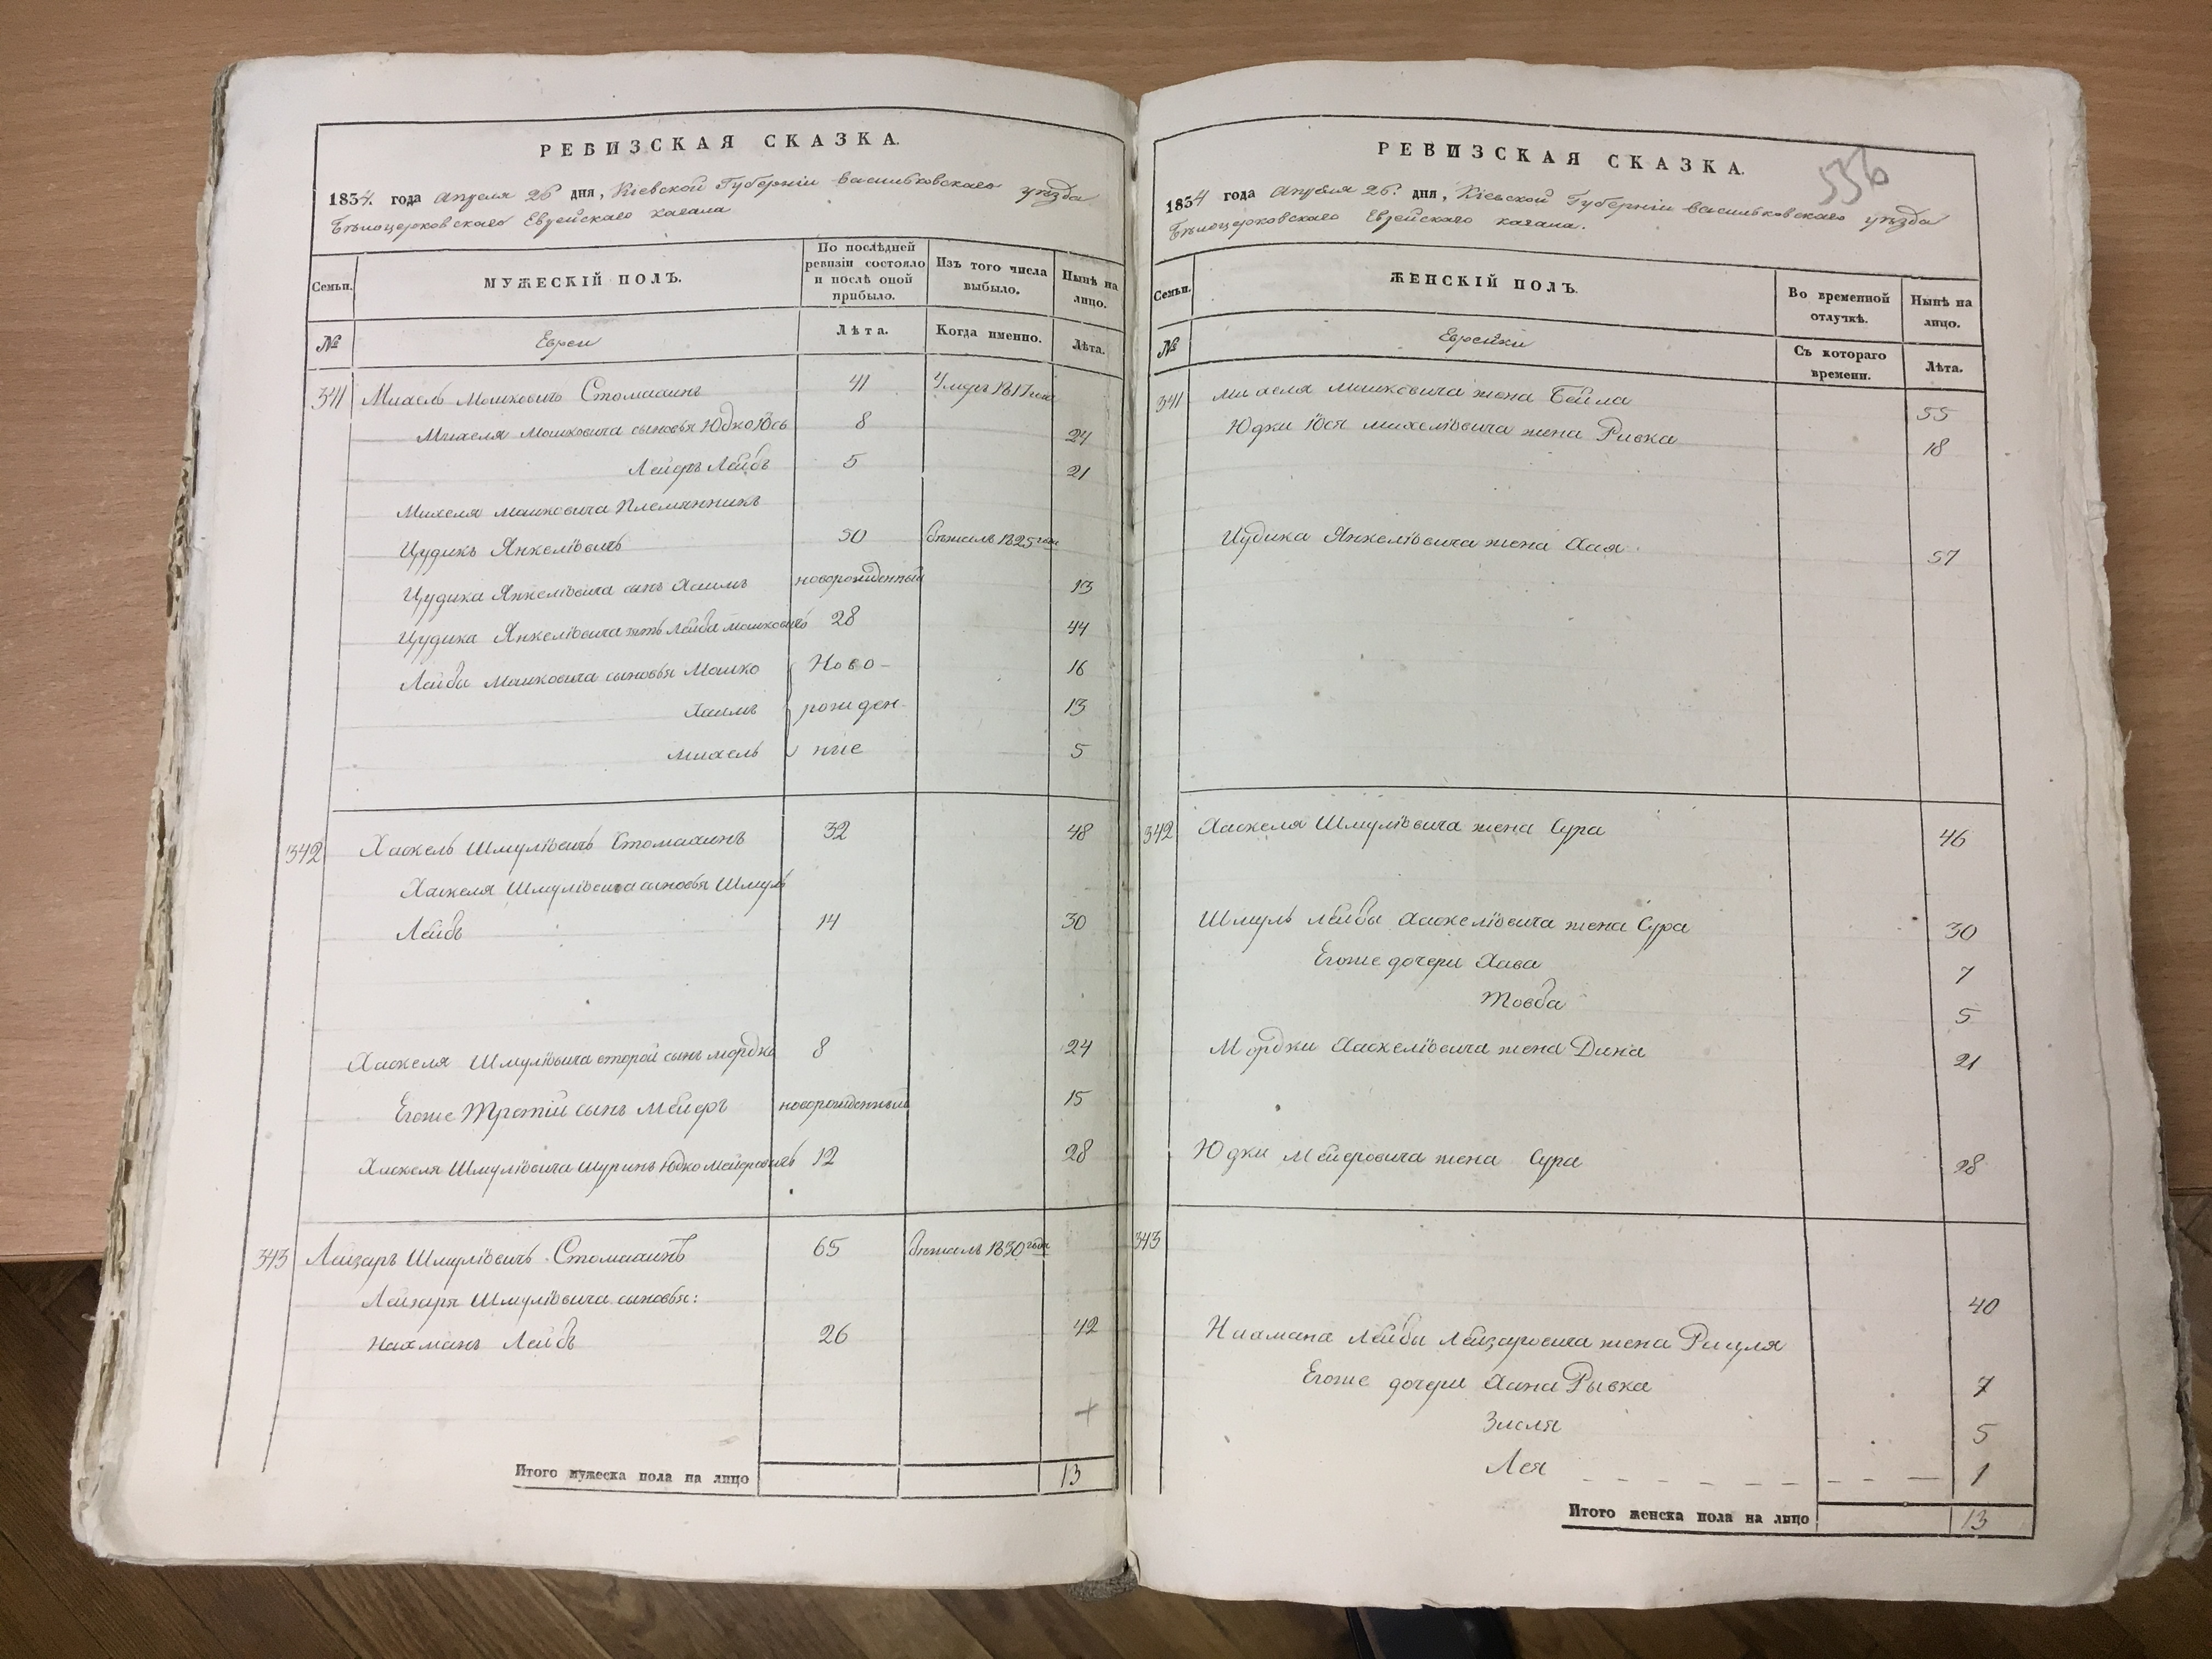 РЕВИЗСКАЯ СКАЗКА.
1834. года Апреля 26 дня, Кіевской Губерніи Васильковскаго уѣзда
Бѣлоцерковскаго Еврейскаго кагала
Семьи.
МУЖЕСКІЙ ПОЛЪ.
По послѣдней ревизіи состояло и послѣ оной прибыло.
Изъ того числа выбыло.
Нынѣ на лицо.
№
Евреи
Лѣта.
Когда именно.
Лѣта.
341 Михель Мошковичъ Стомахинъ 41 Умеръ 1817 года
Михеля Мошковича сыновья Юдко Іось 8 24
Лейбъ 5 21
Михеля Мошковича Племянникъ
Цудикъ Янкеліовичъ 50 бѣжалъ 1825 года
Цудика Янкеліовича сынъ Хаимъ новорожденный 13
Цудика Янкеліовича зять Лейба Мошковичъ 28 44
Лейбы Мошковича сыновья Мошко Ново- 16
Хаимъ рожден- 13
Михель ные 5
342 Хаскель Шмуліовичъ Стомахинъ 32 48
Хаскеля Шмуліовича сыновья Шмуль
Лейбъ 14 30
Хаскеля Шмуліовича второй сынъ Мордко 8 24
Егоже Третій сынъ Мейеръ новорожденный 15
Хаскеля Шмуліовича Шуринъ Юдко Мейеровичъ 12 28
343 Лейзаръ Шмуліовичъ Стомахинъ 65 бѣжалъ 1830 года
Лейзаря Шмуліовича сыновья:
Нахманъ Лейбъ 26 42
Итого мужеска пола на лицо 13
РЕВИЗСКАЯ СКАЗКА.
536
1834 года Апреля 26. дня, Кіевской Губерніи Васильковскаго уѣзда
Бѣлоцерковскаго Еврейскаго кагала.
Семьи.
ЖЕНСКІЙ ПОЛЪ.
Во временной отлучкѣ.
Нынѣ на лицо.
№
Еврейки
Съ котораго времени.
Лѣта.
341 Михеля Мошковича жена Бейла 55
Юдки Іося Михеліовича жена Ривка 18
Цудика Янкеліовича жена Хая 57
342 Хаскеля Шмуліовича жена Сура 46
Шмуль Лейбы Хаскеліовича жена Сура 30
Егоже дочери Хава 7
Товба 5
Мордки Хаскеліовича жена Дина 21
Юдки Мейеровича жена Сура 28
343
40
Нахмана Лейбы Лейзаровича жена Рицля
Егоже дочери Хана Рывка 7
Зисля 5
Лея 1
Итого женска пола на лицо 13